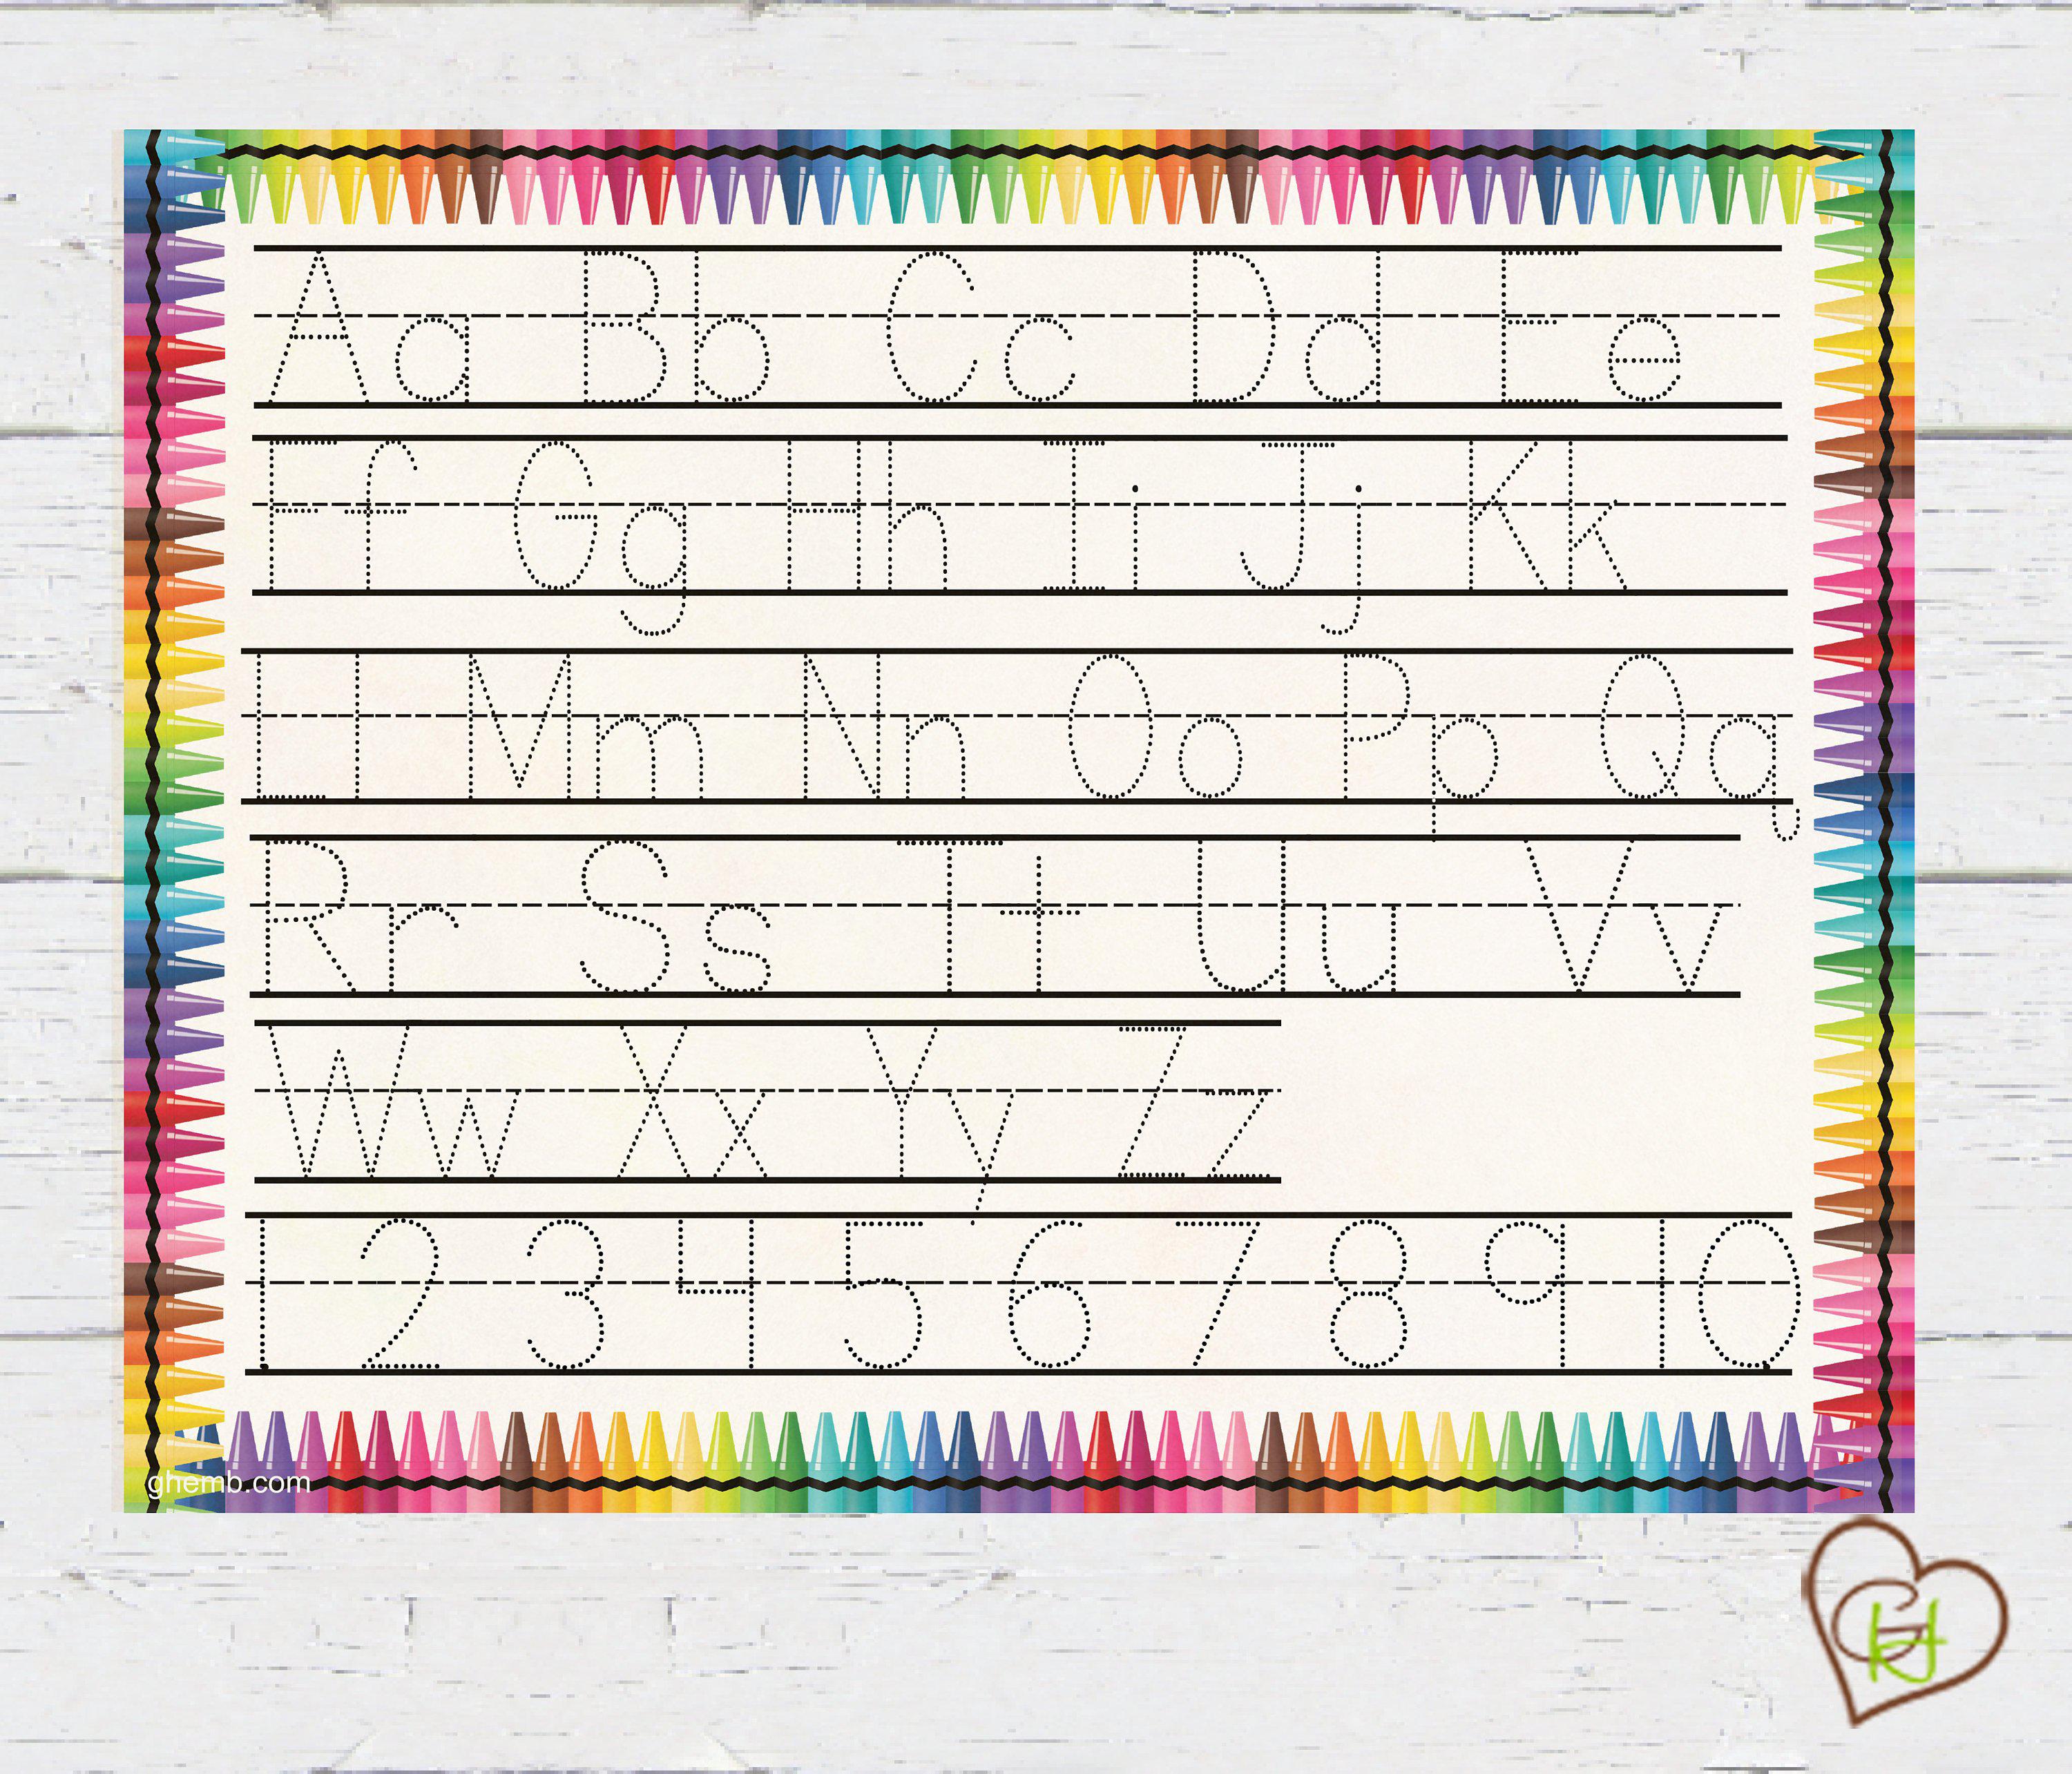 Aa Bb Cc Dd Ee
Ff Gg Hh Ii Jj Kk
Ll Mm Nn Oo Pp Qq
Rr Ss Tt Uu Vv
Ww Xx Yy Zz
1 2 3 4 5 6 7 8 9 10
ghemb.com
GH